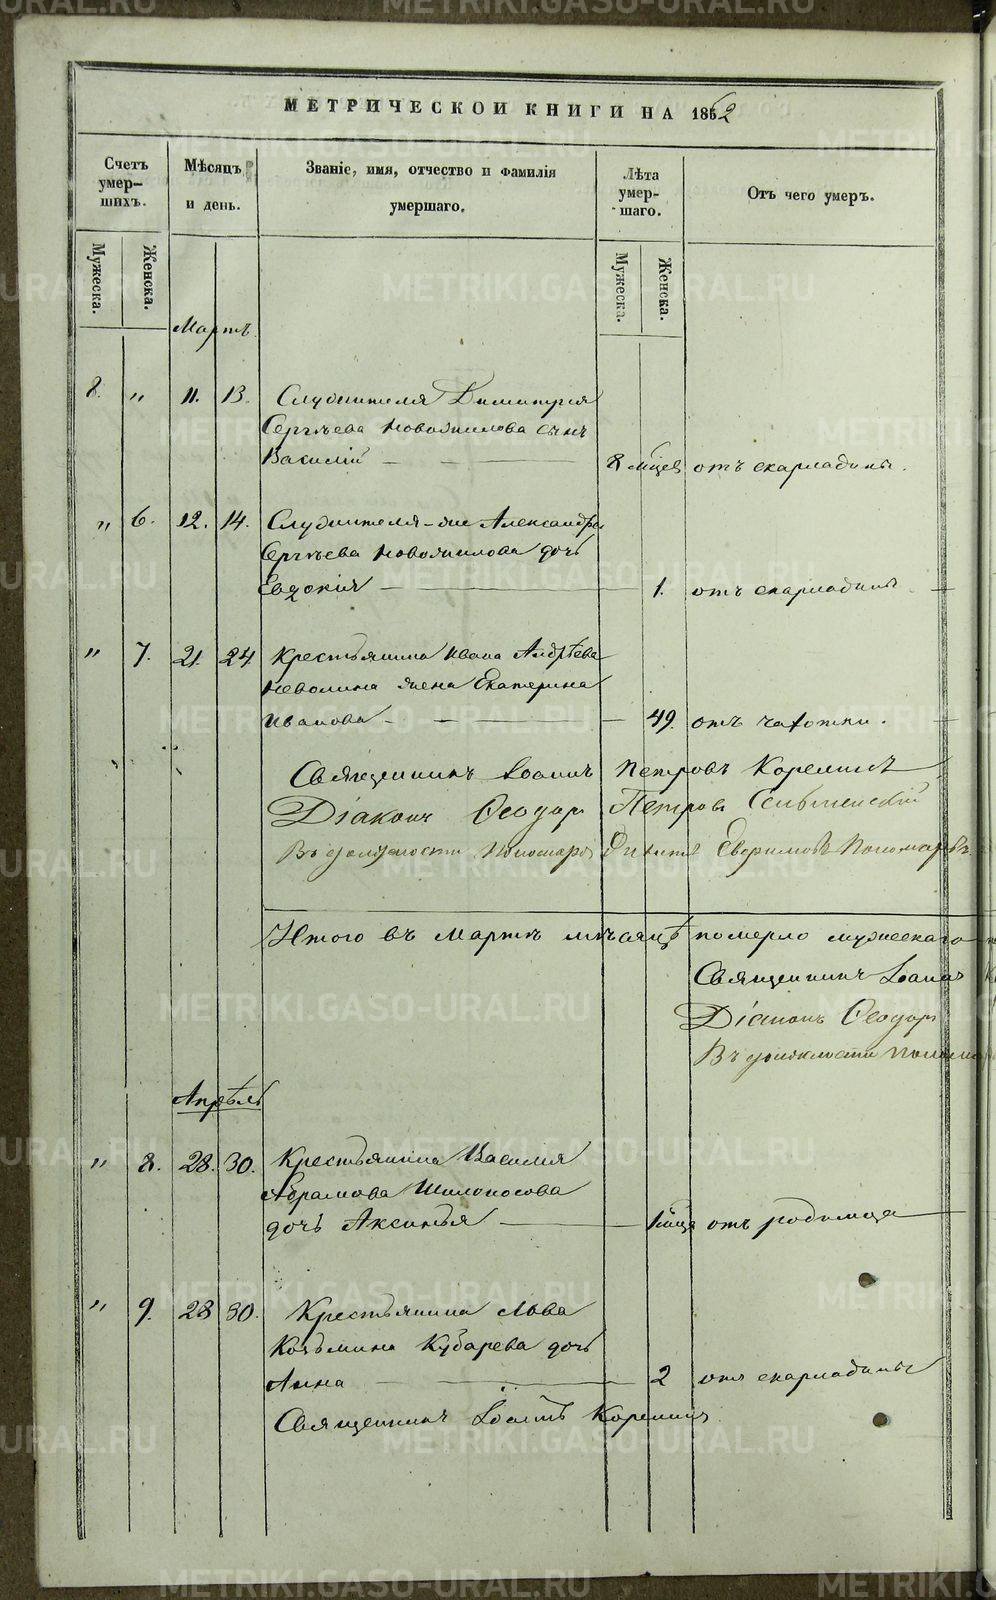 МЕТРИЧЕСКОЙ КНИГИ НА 1862
Счетъ умер-
шихъ.
Мѣсяцъ
и день.
Званіе, имя, отчество и фамилія
умершаго.
Лѣта
умер-
шаго.
Отъ чего умеръ.
Мужеска.
Женска.
Мужеска.
Женска.
Мартъ.
8. " 11. 13. Служителя Димитрія
Сергѣева Новожилова сынъ
Василій 8 мцев отъ скарладины.
" 6. 12. 14. Служителя-же Александра
Сергѣева Новожилова дочь
Евдокія 1. отъ скарладины
" 7. 21. 24 Крестьянина Ивана Андрѣева
Неволина жена Екатерина
Иванова 49. отъ чахотки.
Священникъ Іоаннъ Петровъ Корелинъ
Діаконъ Ѳеодоръ Петровъ
Въ должности Пономаря Пономаревъ
Итого въ Мартѣ мѣсяцѣ померло мужескаго
Священникъ Іоаннъ
Діаконъ Ѳеодоръ
Въ должности
Апрѣль
" 8. 28. 30. Крестьянина Василія
Абрамова Шилоносова
дочь Аксинья отъ родимца
" 9. 28 30. Крестьянина Льва
Козьмина Кубарева дочь
Анна 2 отъ скарладины
Священникъ Іоаннъ Корелинъ
METRIKI.GASO-URAL.RU